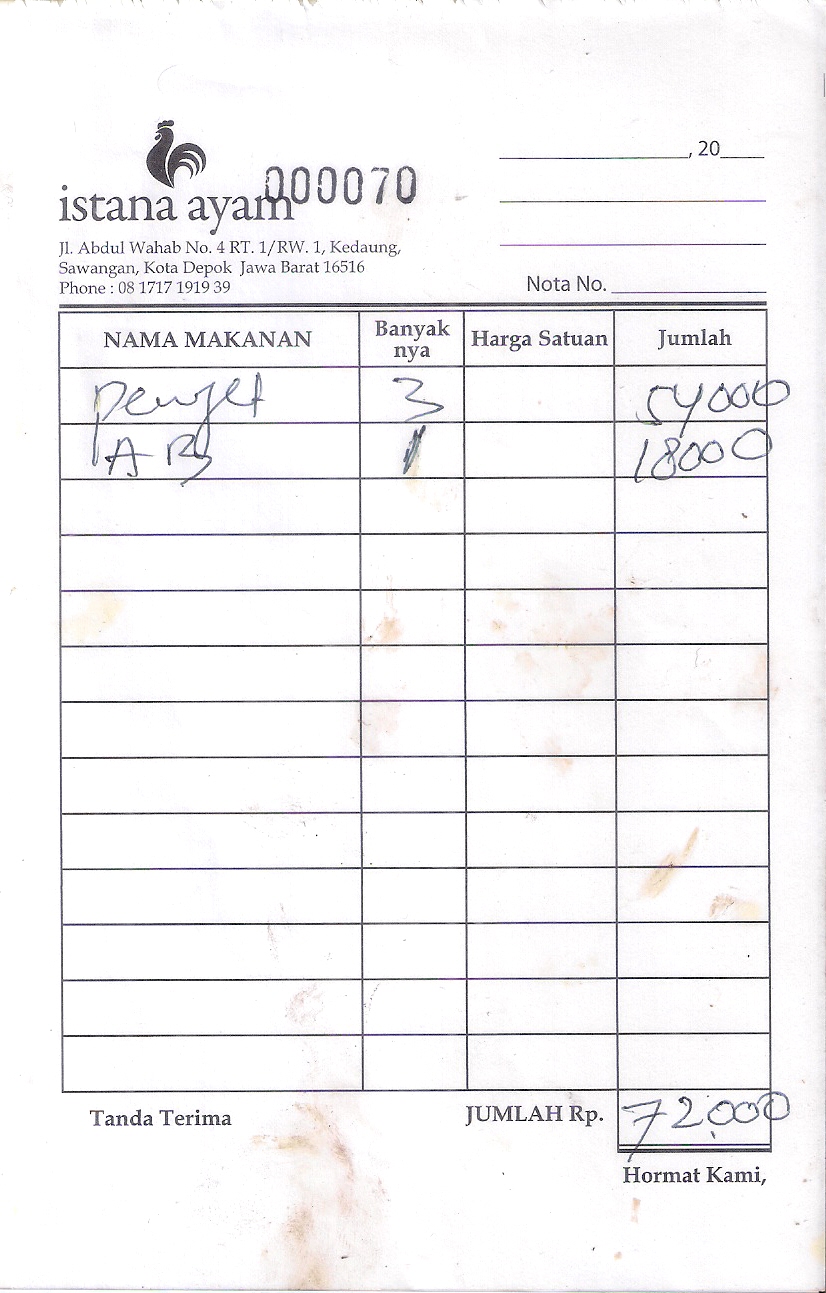 000070
istana ayam
Jl. Abdul Wahab No. 4 RT. 1/RW. 1, Kedaung,
Sawangan, Kota Depok Jawa Barat 16516
Phone : 08 1717 1919 39
, 20
Nota No.
NAMA MAKANAN Banyak nya Harga Satuan Jumlah
penyet 3 54000
AB 1 18000
Tanda Terima JUMLAH Rp. 72.000
Hormat Kami,